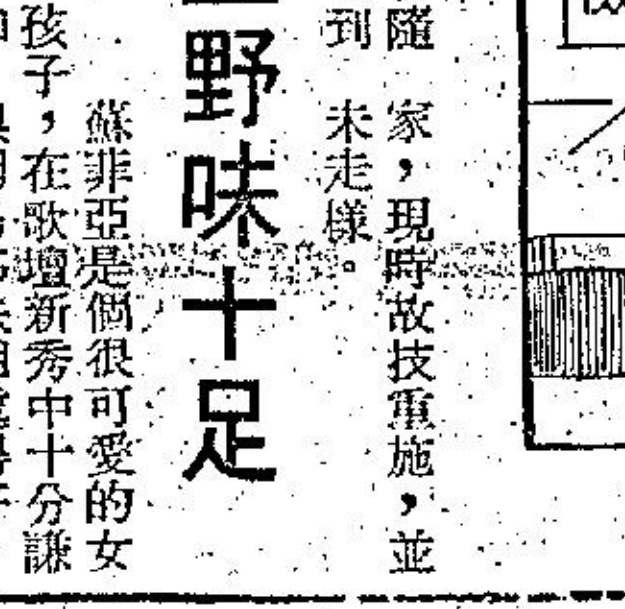 隨　家，現時故技重施，並
到　未走樣。
野味十足
蘇菲亞是個很可愛的女
孩子，在歌壇新秀中十分謙